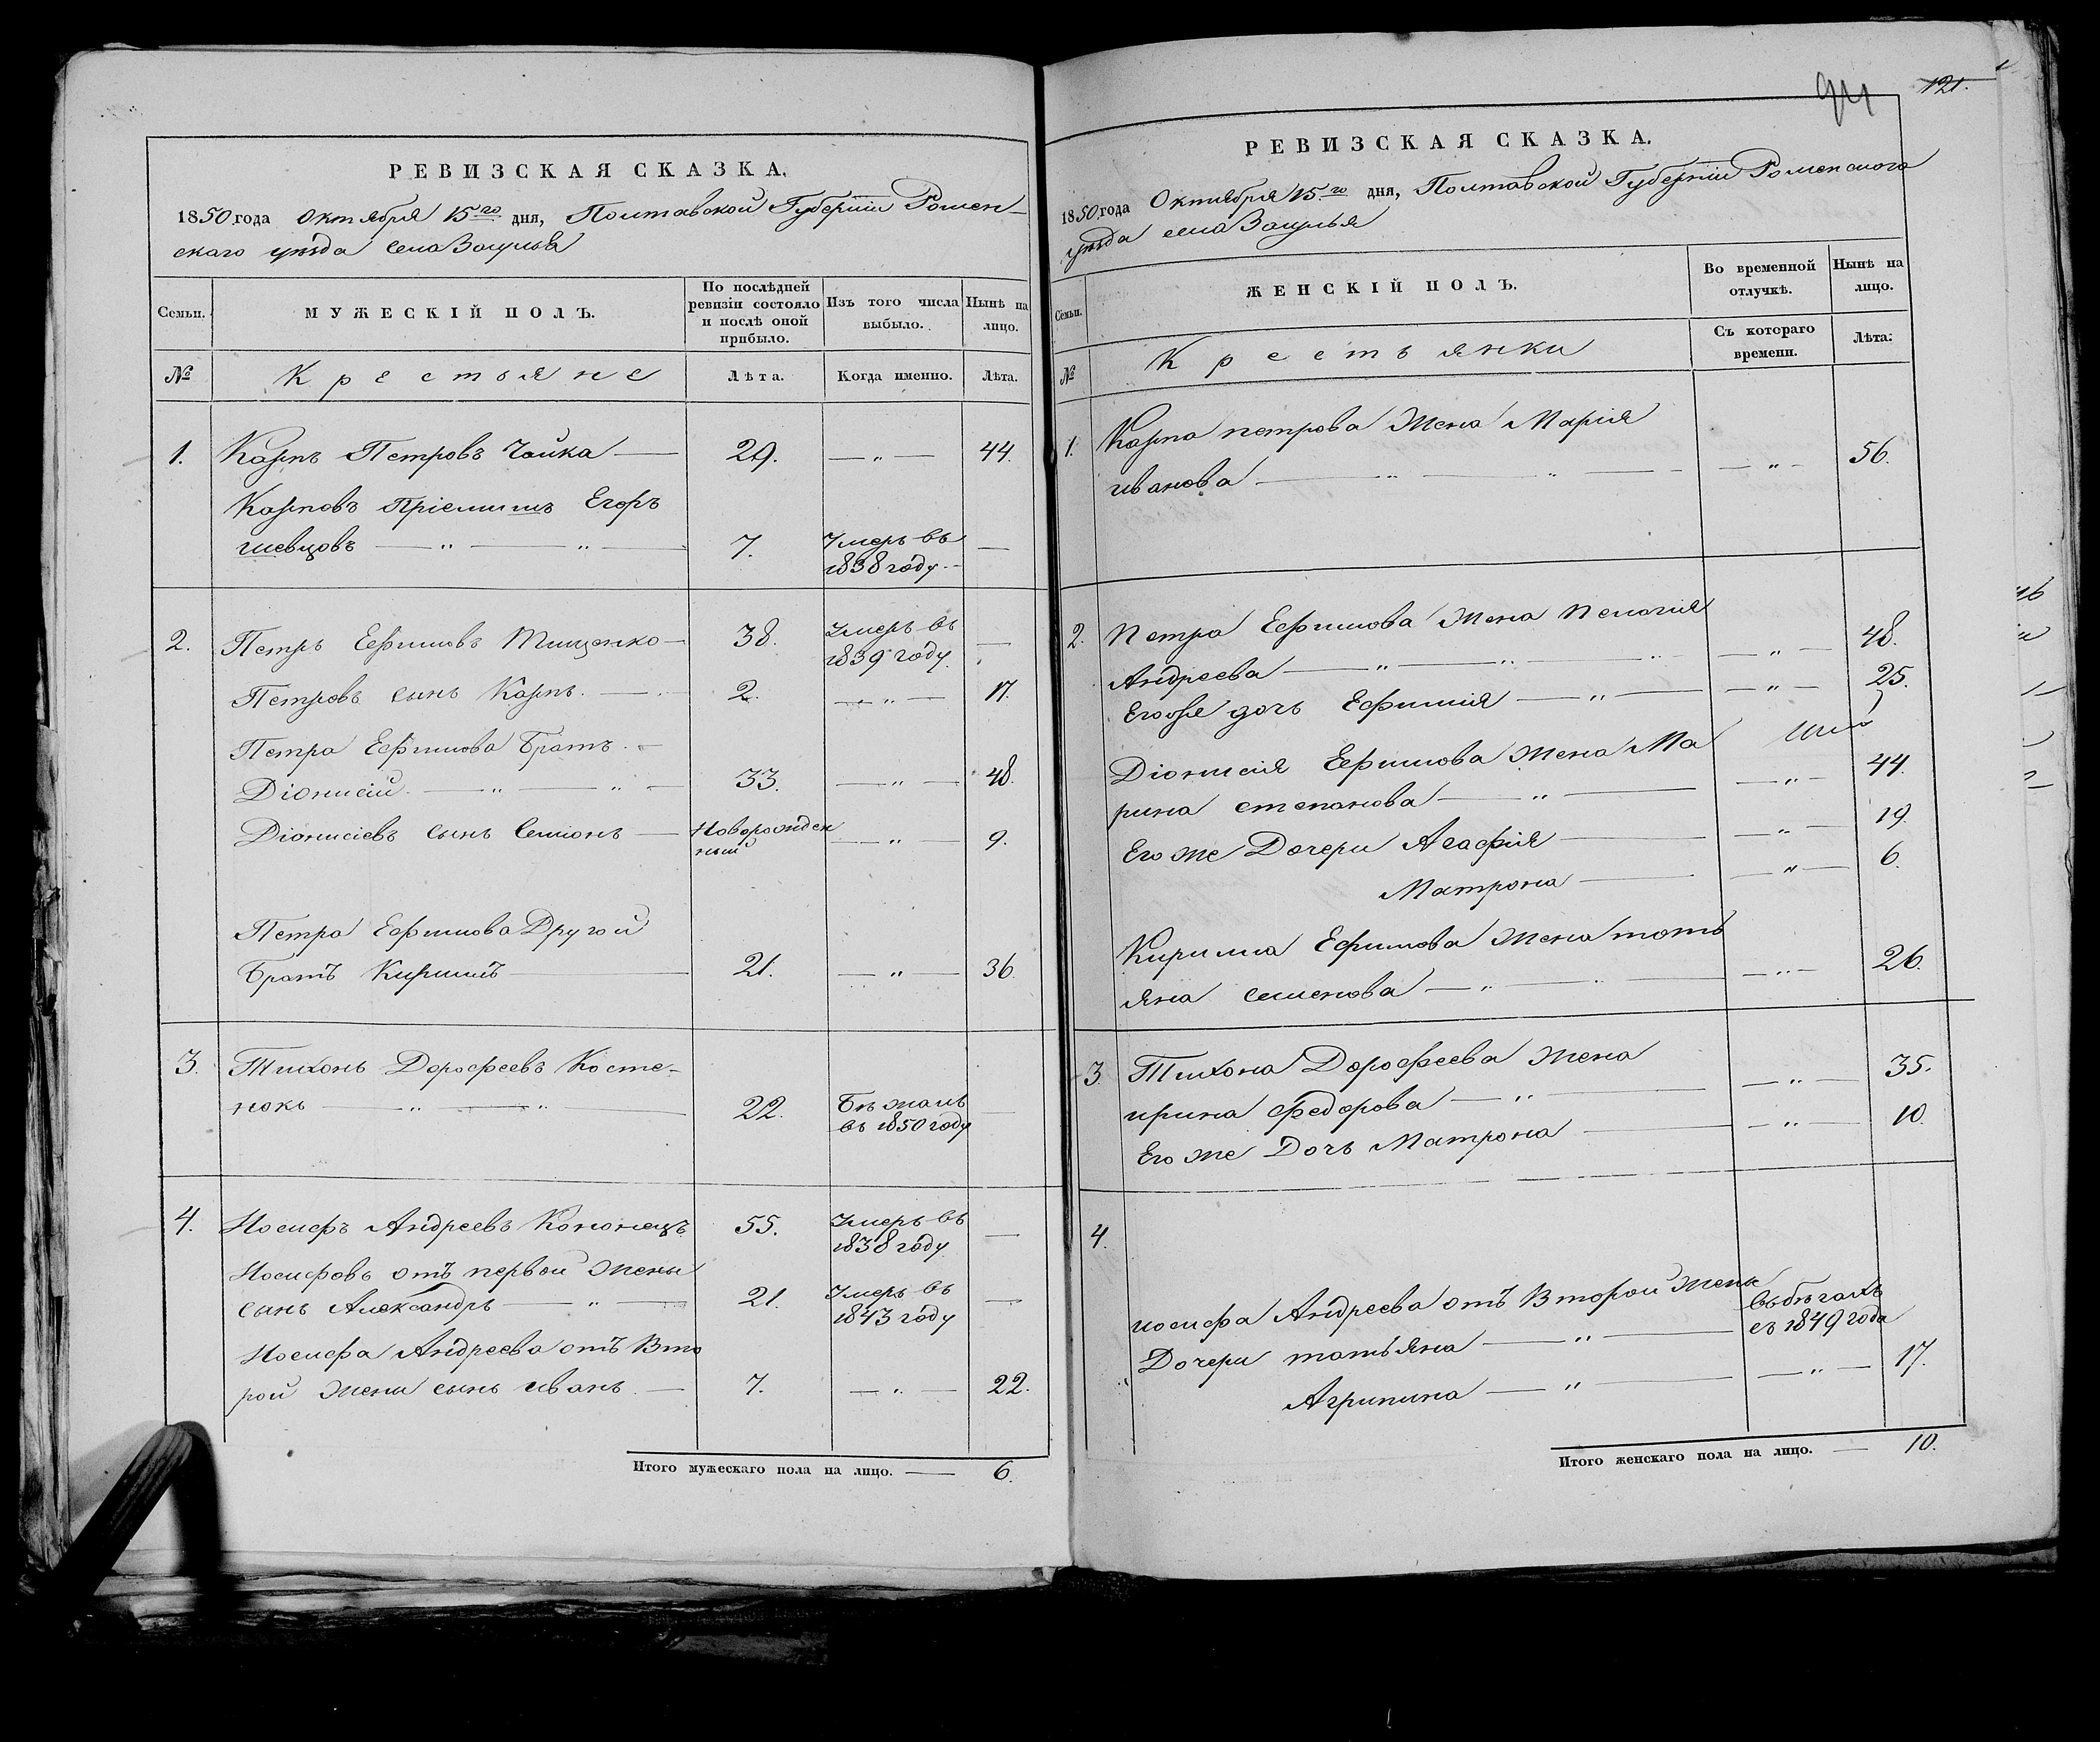 РЕВИЗСКАЯ СКАЗКА.
1850 года Октября 15го дня, Полтавской Губерніи Ромен-
скаго уѣзда села Засулья
Семьи.
МУЖЕСКІЙ ПОЛЪ.
По послѣдней ревизіи состояло и послѣ оной прибыло.
Изъ того числа выбыло.
Нынѣ на лицо.
№
Крестьяне
Лѣта.
Когда именно.
Лѣта.
1. Карпъ Петровъ Чайка 29. — " — 44.
Карповъ Пріемишъ Егоръ
шевцовъ — " — " — 7. Умеръ въ —
1838 году.
2. Петръ Ефимовъ Тищенко 38. Умеръ въ —
1839 году.
Петровъ сынъ Карпъ. 2. — " — 17.
Петра Ефимова Братъ.
Діонисій. — " — " — 33. — " — 48.
Діонисіевъ сынъ Семіонъ — Новорожден — " — 9.
ный
Петра Ефимова Другой
Братъ Кирилъ 21. — " — 36
3. Тихонъ Дорофеевъ Косте-
нокъ — " — " — 22. Бѣжалъ —
въ 1850 году
4. Иосифъ Андреевъ Кононецъ 55. Умеръ въ —
1838 году
Иосифовъ отъ первой жены
сынъ Александръ — " — 21. Умеръ въ —
1843 году
Иосифа Андреева отъ Вто
рой жены сынъ иванъ. — 7. — " — 22.
Итого мужескаго пола на лицо. — 6.
121.
94
РЕВИЗСКАЯ СКАЗКА.
1850 года Октября 15го дня, Полтавской Губерніи Роменскаго
уѣзда села Засулья
Семьи.
ЖЕНСКІЙ ПОЛЪ.
Во временной отлучкѣ.
Нынѣ на лицо.
Съ котораго времени.
Лѣта:
№
Крестьянки
1. Карпа петрова Жена Марія
иванова — " — " — — " — 56.
2. Петра Ефимова Жена Пелагія
Андреева — " — " — — " — 48.
Егоже дочь Ефимія — " — — " — 25.
Діонисія Ефимова Жена Ма
рина степанова — " — — " — 44.
Его же Дочери Агафія — — " — 19.
Матрона — — " — 6.
Кирила Ефимова жена тать
яна семенова — " — — " — 26.
3 Тихона Дорофеева жена
ирина федорова — " — — " — 35.
Его же Дочь Матрона — — " — 10.
4.
иосифа Андреева отъ Второй жены
въ бѣгахъ
Дочери татьяна — " — съ 1849 года
Агрипина — " — — " — 17.
Итого женскаго пола на лицо. — 10.